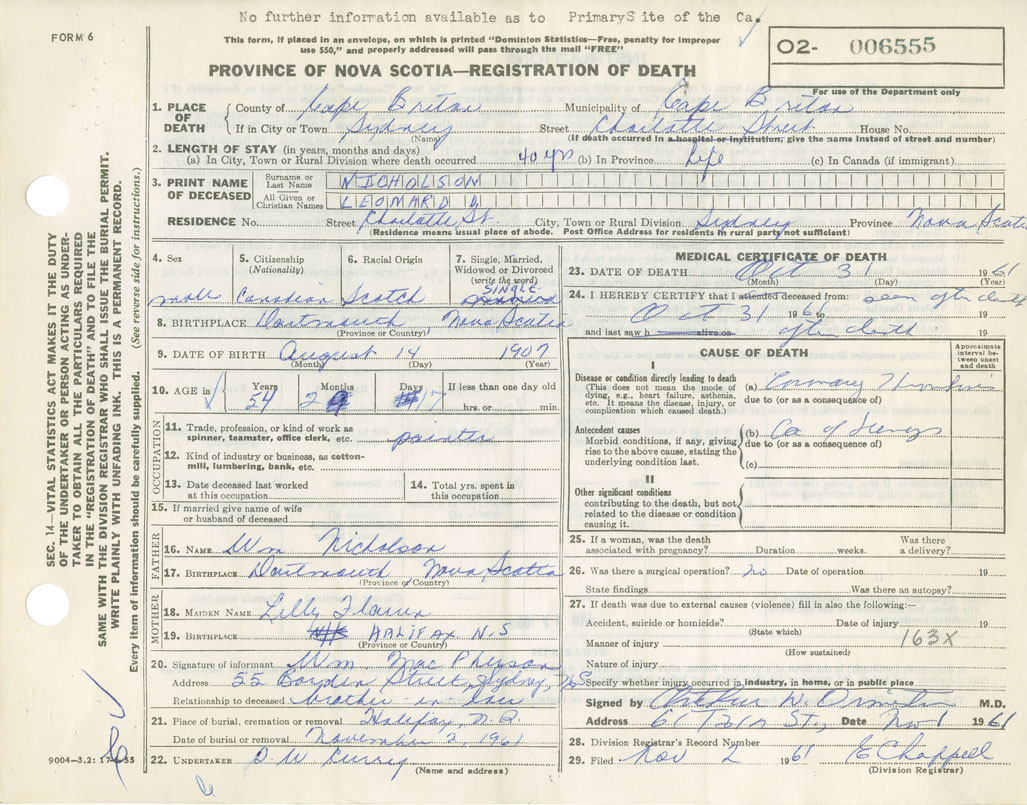 No further information available as to PrimaryS ite of the Ca.
FORM 6
This form, if placed in an envelope, on which is printed "Dominion Statistics—Free, penalty for improper
use $50," and properly addressed will pass through the mail "FREE"
O2- 006555
PROVINCE OF NOVA SCOTIA—REGISTRATION OF DEATH
For use of the Department only
1. PLACE OF DEATH
County of Cape Breton Municipality of Cape Breton
If in City or Town Sydney Street Charlotte Street House No.
(Name) (If death occurred in a hospital or institution, give the name instead of street and number)
2. LENGTH OF STAY (in years, months and days)
(a) In City, Town or Rural Division where death occurred 40 yrs (b) In Province Life (c) In Canada (if immigrant)
3. PRINT NAME OF DECEASED
Surname or Last Name NICHOLSON
All Given or Christian Names LEONARD D
RESIDENCE No. Street Charlotte St. City, Town or Rural Division Sydney Province Nova Scotia
(Residence means usual place of abode. Post Office Address for residents in rural parts not sufficient)
4. Sex 5. Citizenship (Nationality) 6. Racial Origin 7. Single, Married, Widowed or Divorced (write the word)
SINGLE
male Canadian Scotch
8. BIRTHPLACE Dartmouth Nova Scotia
(Province or Country)
9. DATE OF BIRTH August 14 1907
(Month) (Day) (Year)
10. AGE in Years Months Days If less than one day old
54 2 17 hrs. or min.
OCCUPATION
11. Trade, profession, or kind of work as
spinner, teamster, office clerk, etc. painter
12. Kind of industry or business, as cotton-
mill, lumbering, bank, etc.
13. Date deceased last worked
at this occupation
14. Total yrs. spent in
this occupation
15. If married give name of wife
or husband of deceased
FATHER
16. NAME Wm Nicholson
17. BIRTHPLACE Dartmouth Nova Scotia
(Province or Country)
MOTHER
18. MAIDEN NAME Lilly
19. BIRTHPLACE HALIFAX N.S
(Province or Country)
20. Signature of informant Wm. MacPherson
Address 55 Borden Street, Sydney, N.S
Relationship to deceased brother in law
21. Place of burial, cremation or removal Halifax, N.S.
Date of burial or removal November 2, 1961
22. UNDERTAKER D. W. Curry
(Name and address)
MEDICAL CERTIFICATE OF DEATH
23. DATE OF DEATH Oct 31 1961
(Month) (Day) (Year)
24. I HEREBY CERTIFY that I attended deceased from: seen after death
Oct 31 1961 to 19
and last saw h alive on after death 19
CAUSE OF DEATH
Approximate interval between onset and death
I
Disease or condition directly leading to death
(This does not mean the mode of
dying, e.g., heart failure, asthenia,
etc. It means the disease, injury, or
complication which caused death.)
(a) Coronary
due to (or as a consequence of)
Antecedent causes
Morbid conditions, if any, giving
rise to the above cause, stating the
underlying condition last.
(b) Ca of Lungs
due to (or as a consequence of)
(c)
II
Other significant conditions
contributing to the death, but not
related to the disease or condition
causing it.
25. If a woman, was the death Was there
associated with pregnancy? Duration weeks. a delivery?
26. Was there a surgical operation? no Date of operation 19
State findings Was there an autopsy?
27. If death was due to external causes (violence) fill in also the following:—
Accident, suicide or homicide? Date of injury 19
(State which)
Manner of injury 163X
(How sustained)
Nature of injury
Specify whether injury occurred in industry, in home, or in public place
Signed by Arthur W. Ormiston M.D.
Address St., Date Nov 1 1961
28. Division Registrar's Record Number
29. Filed Nov 2 1961 E Chappell
(Division Registrar)
SEC. 14—VITAL STATISTICS ACT MAKES IT THE DUTY
OF THE UNDERTAKER OR PERSON ACTING AS UNDER-
TAKER TO OBTAIN ALL THE PARTICULARS REQUIRED
IN THE "REGISTRATION OF DEATH" AND TO FILE THE
SAME WITH THE DIVISION REGISTRAR WHO SHALL ISSUE THE BURIAL PERMIT.
WRITE PLAINLY WITH UNFADING INK. THIS IS A PERMANENT RECORD.
Every item of information should be carefully supplied. (See reverse side for instructions.)